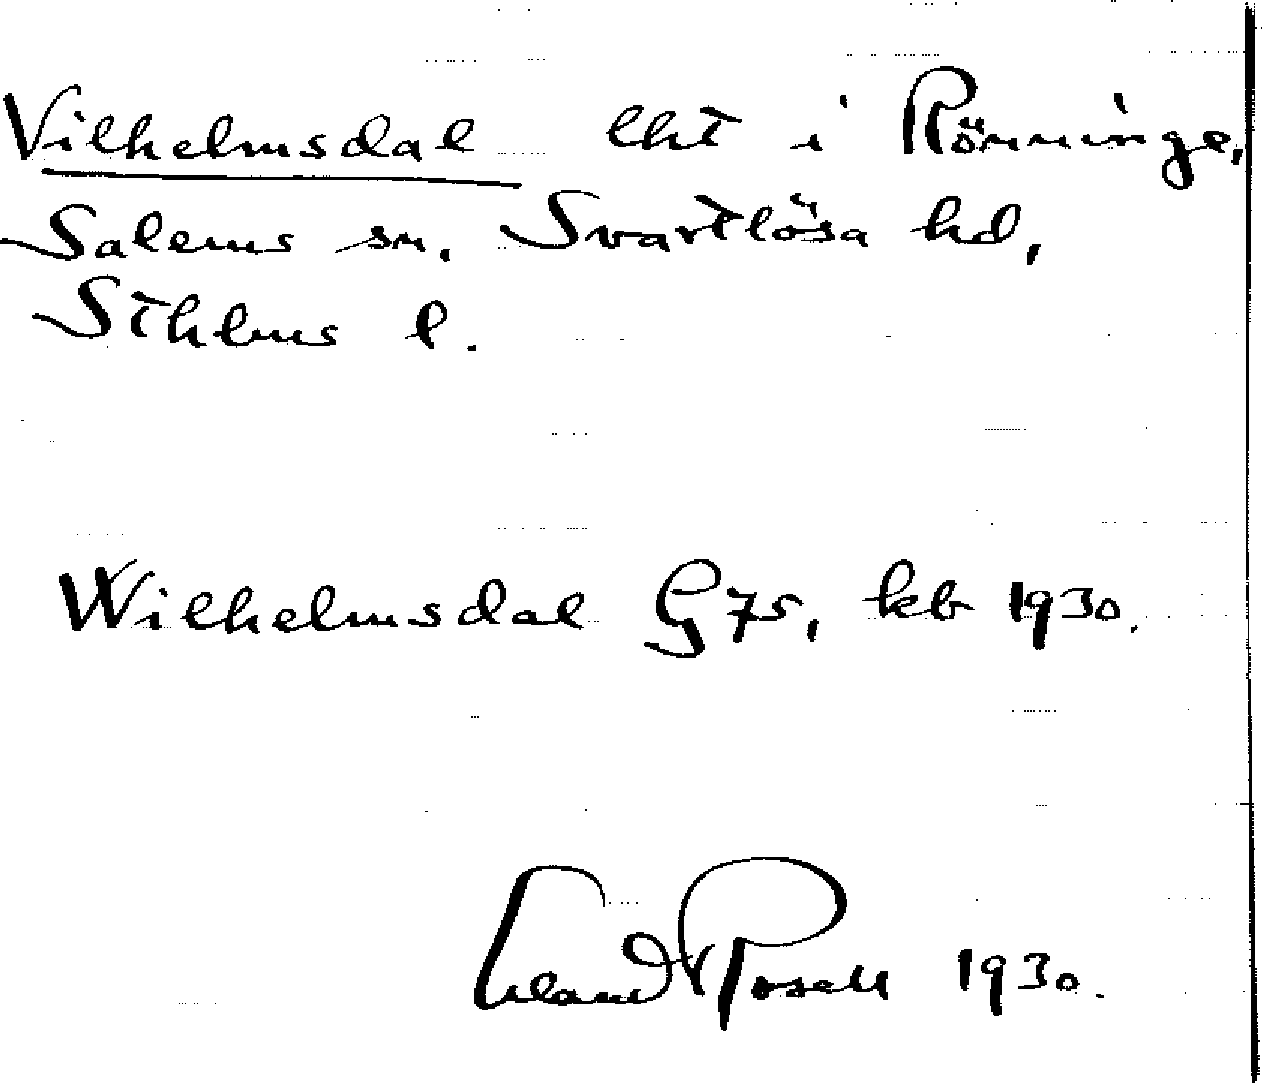 Vilhelmsdal lht i Rönninge,
Salems sn, Svartlösa hd,
Sthlms l.
Wilhelmsdal G 75, kb 1930.
Erland Rosell 1930.